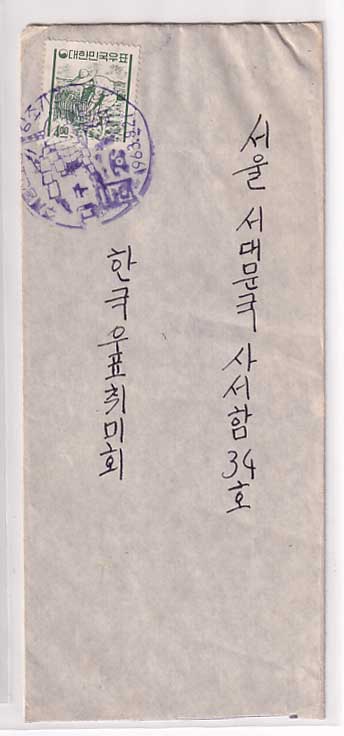 대한민국우표
4.00
서울 서대문국 사서함 34호
한국우표취미회